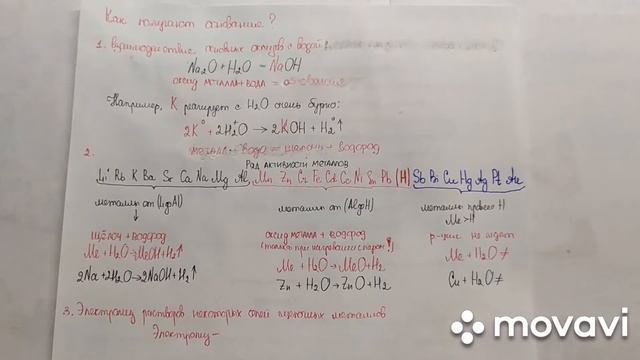 Как получают основание?
1. Взаимодействие основных оксидов с водой
Na₂O + H₂O = NaOH
оксид металла + вода = основание
Например, K реагирует с H₂O очень бурно:
2K⁰ + 2H₂⁺O → 2KOH + H₂⁰↑
металл + вода = щелочь + водород
2. Ряд активности металлов
Li Rb K Ba Sr Ca Na Mg Al, Mn Zn Cr Fe Cd Co Ni Sn Pb (H) Sb Bi Cu Hg Ag Pt Au
металлы от (Li до Al)
щёлоч + водород
Me + H₂O → MeOH + H₂↑
2Na + 2H₂O → 2NaOH + H₂↑
металлы от (Al до H)
оксид металла + водород
(только при нагревании с паром!)
Me + H₂O → MeO + H₂
Zn + H₂O → ZnO + H₂
металлы правее H
Me > H
р-ция не идет
Me + H₂O ≠
Cu + H₂O ≠
3. Электролиз растворов некоторых солей щелочных металлов
Электролиз -
movavi